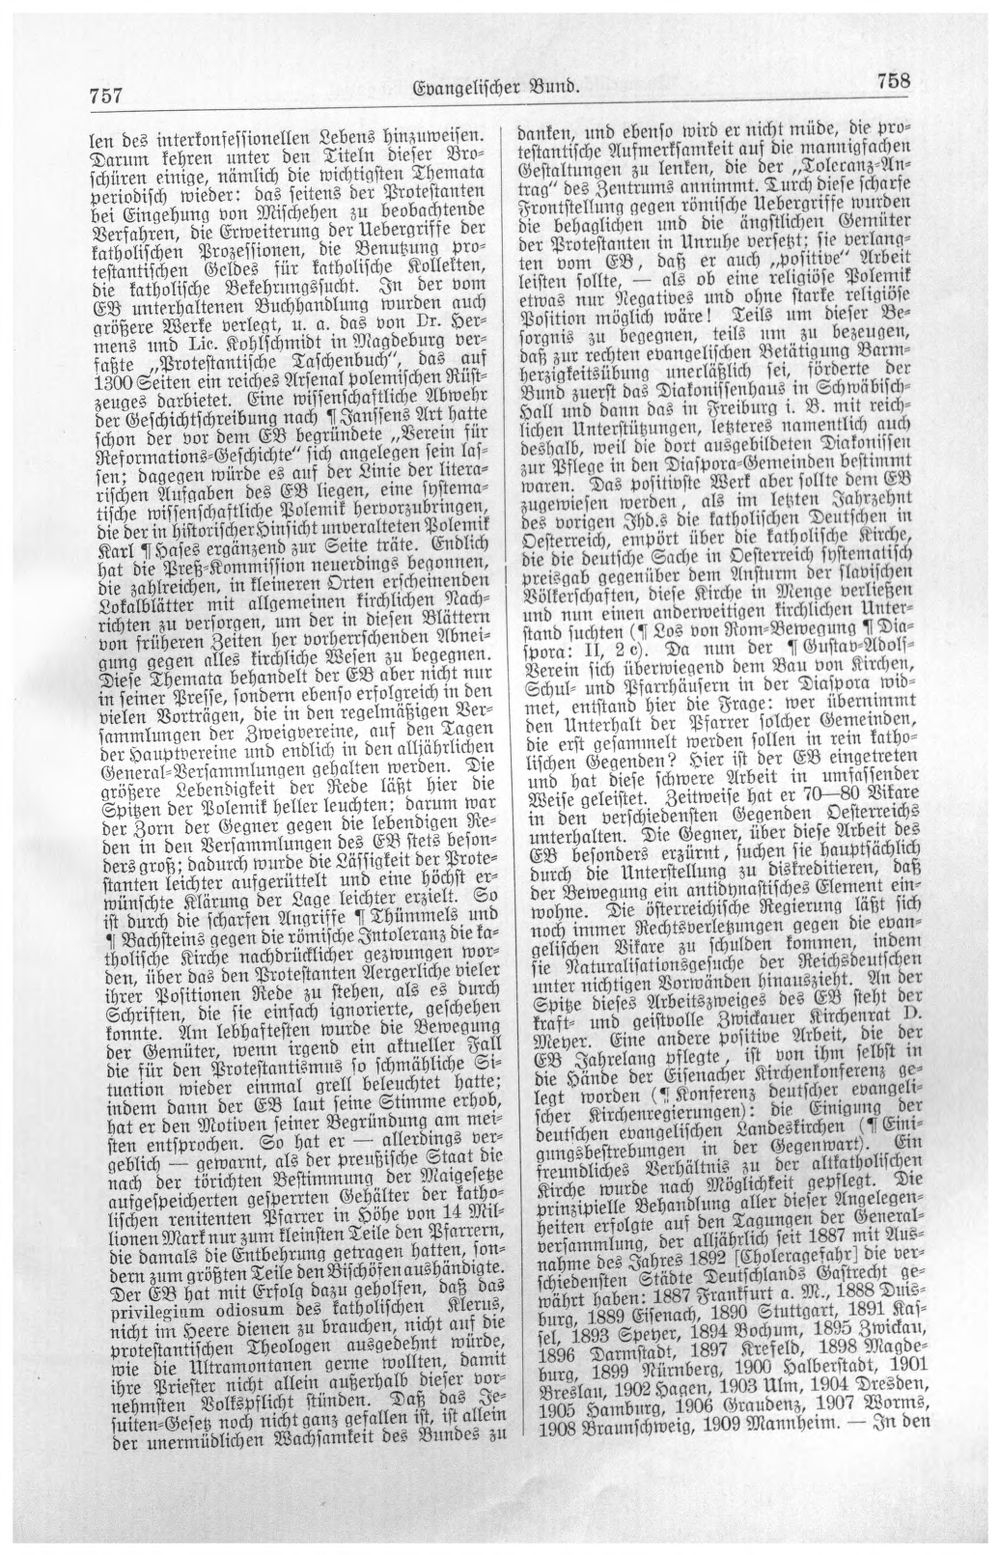 757
Evangelischer Bund.
758
len des interkonfessionellen Lebens hinzuweisen.
Darum kehren unter den Titeln dieser Bro-
schüren einige, nämlich die wichtigsten Themata
periodisch wieder: das seitens der Protestanten
bei Eingehung von Mischehen zu beobachtende
Verfahren, die Erweiterung der Uebergriffe der
katholischen Prozessionen, die Benutzung pro-
testantischen Geldes für katholische Kollekten,
die katholische Bekehrungssucht. In der vom
EB unterhaltenen Buchhandlung wurden auch
größere Werke verlegt, u. a. das von Dr. Her-
mens und Lic. Kohlschmidt in Magdeburg ver-
faßte „Protestantische Taschenbuch“, das auf
1300 Seiten ein reiches Arsenal polemischen Rüst-
zeuges darbietet. Eine wissenschaftliche Abwehr
der Geschichtschreibung nach ¶ Janssens Art hatte
schon der vor dem EB begründete „Verein für
Reformations-Geschichte“ sich angelegen sein las-
sen; dagegen würde es auf der Linie der litera-
rischen Aufgaben des EB liegen, eine systema-
tische wissenschaftliche Polemik hervorzubringen,
die der in historischer Hinsicht unveralteten Polemik
Karl ¶ Hases ergänzend zur Seite träte. Endlich
hat die Preß-Kommission neuerdings begonnen,
die zahlreichen, in kleineren Orten erscheinenden
Lokalblätter mit allgemeinen kirchlichen Nach-
richten zu versorgen, um der in diesen Blättern
von früheren Zeiten her vorherrschenden Abnei-
gung gegen alles kirchliche Wesen zu begegnen.
Diese Themata behandelt der EB aber nicht nur
in seiner Presse, sondern ebenso erfolgreich in den
vielen Vorträgen, die in den regelmäßigen Ver-
sammlungen der Zweigvereine, auf den Tagen
der Hauptvereine und endlich in den alljährlichen
General-Versammlungen gehalten werden. Die
größere Lebendigkeit der Rede läßt hier die
Spitzen der Polemik heller leuchten; darum war
der Zorn der Gegner gegen die lebendigen Re-
den in den Versammlungen des EB stets beson-
ders groß; dadurch wurde die Lässigkeit der Prote-
stanten leichter aufgerüttelt und eine höchst er-
wünschte Klärung der Lage leichter erzielt. So
ist durch die scharfen Angriffe ¶ Thümmels und
¶ Bachsteins gegen die römische Intoleranz die ka-
tholische Kirche nachdrücklicher gezwungen wor-
den, über das den Protestanten Aergerliche vieler
ihrer Positionen Rede zu stehen, als es durch
Schriften, die sie einfach ignorierte, geschehen
konnte. Am lebhaftesten wurde die Bewegung
der Gemüter, wenn irgend ein aktueller Fall
die für den Protestantismus so schmähliche Si-
tuation wieder einmal grell beleuchtet hatte;
indem dann der EB laut seine Stimme erhob,
hat er den Motiven seiner Begründung am mei-
sten entsprochen. So hat er — allerdings ver-
geblich — gewarnt, als der preußische Staat die
nach der törichten Bestimmung der Maigesetze
aufgespeicherten gesperrten Gehälter der katho-
lischen renitenten Pfarrer in Höhe von 14 Mil-
lionen Mark nur zum kleinsten Teile den Pfarrern,
die damals die Entbehrung getragen hatten, son-
dern zum größten Teile den Bischöfen aushändigte.
Der EB hat mit Erfolg dazu geholfen, daß das
privilegium odiosum des katholischen Klerus,
nicht im Heere dienen zu brauchen, nicht auf die
protestantischen Theologen ausgedehnt würde,
wie die Ultramontanen gerne wollten, damit
ihre Priester nicht allein außerhalb dieser vor-
nehmsten Volkspflicht stünden. Daß das Je-
suiten-Gesetz noch nicht ganz gefallen ist, ist allein
der unermüdlichen Wachsamkeit des Bundes zu
danken, und ebenso wird er nicht müde, die pro-
testantische Aufmerksamkeit auf die mannigfachen
Gestaltungen zu lenken, die der „Toleranz-An-
trag“ des Zentrums annimmt. Durch diese scharfe
Frontstellung gegen römische Uebergriffe wurden
die behaglichen und die ängstlichen Gemüter
der Protestanten in Unruhe versetzt; sie verlang-
ten vom EB, daß er auch „positive“ Arbeit
leisten sollte, — als ob eine religiöse Polemik
etwas nur Negatives und ohne starke religiöse
Position möglich wäre! Teils um dieser Be-
sorgnis zu begegnen, teils um zu bezeugen,
daß zur rechten evangelischen Betätigung Barm-
herzigkeitsübung unerläßlich sei, förderte der
Bund zuerst das Diakonissenhaus in Schwäbisch-
Hall und dann das in Freiburg i. B. mit reich-
lichen Unterstützungen, letzteres namentlich auch
deshalb, weil die dort ausgebildeten Diakonissen
zur Pflege in den Diaspora-Gemeinden bestimmt
waren. Das positivste Werk aber sollte dem EB
zugewiesen werden, als im letzten Jahrzehnt
des vorigen Jhd.s die katholischen Deutschen in
Oesterreich, empört über die katholische Kirche,
die die deutsche Sache in Oesterreich systematisch
preisgab gegenüber dem Ansturm der slavischen
Völkerschaften, diese Kirche in Menge verließen
und nun einen anderweitigen kirchlichen Unter-
stand suchten (¶ Los von Rom-Bewegung ¶ Dia-
spora: II, 2 c). Da nun der ¶ Gustav-Adolf-
Verein sich überwiegend dem Bau von Kirchen,
Schul- und Pfarrhäusern in der Diaspora wid-
met, entstand hier die Frage: wer übernimmt
den Unterhalt der Pfarrer solcher Gemeinden,
die erst gesammelt werden sollen in rein katho-
lischen Gegenden? Hier ist der EB eingetreten
und hat diese schwere Arbeit in umfassender
Weise geleistet. Zeitweise hat er 70—80 Vikare
in den verschiedensten Gegenden Oesterreichs
unterhalten. Die Gegner, über diese Arbeit des
EB besonders erzürnt, suchen sie hauptsächlich
durch die Unterstellung zu diskreditieren, daß
der Bewegung ein antidynastisches Element ein-
wohne. Die österreichische Regierung läßt sich
noch immer Rechtsverletzungen gegen die evan-
gelischen Vikare zu schulden kommen, indem
sie Naturalisationsgesuche der Reichsdeutschen
unter nichtigen Vorwänden hinauszieht. An der
Spitze dieses Arbeitszweiges des EB steht der
kraft- und geistvolle Zwickauer Kirchenrat D.
Meyer. Eine andere positive Arbeit, die der
EB Jahrelang pflegte, ist von ihm selbst in
die Hände der Eisenacher Kirchenkonferenz ge-
legt worden (¶ Konferenz deutscher evangeli-
scher Kirchenregierungen): die Einigung der
deutschen evangelischen Landeskirchen (¶ Eini-
gungsbestrebungen in der Gegenwart). Ein
freundliches Verhältnis zu der altkatholischen
Kirche wurde nach Möglichkeit gepflegt. Die
prinzipielle Behandlung aller dieser Angelegen-
heiten erfolgte auf den Tagungen der General-
versammlung, der alljährlich seit 1887 mit Aus-
nahme des Jahres 1892 [Choleragefahr] die ver-
schiedensten Städte Deutschlands Gastrecht ge-
währt haben: 1887 Frankfurt a. M., 1888 Duis-
burg, 1889 Eisenach, 1890 Stuttgart, 1891 Kas-
sel, 1893 Speyer, 1894 Bochum, 1895 Zwickau,
1896 Darmstadt, 1897 Krefeld, 1898 Magde-
burg, 1899 Nürnberg, 1900 Halberstadt, 1901
Breslau, 1902 Hagen, 1903 Ulm, 1904 Dresden,
1905 Hamburg, 1906 Graudenz, 1907 Worms,
1908 Braunschweig, 1909 Mannheim. — In den